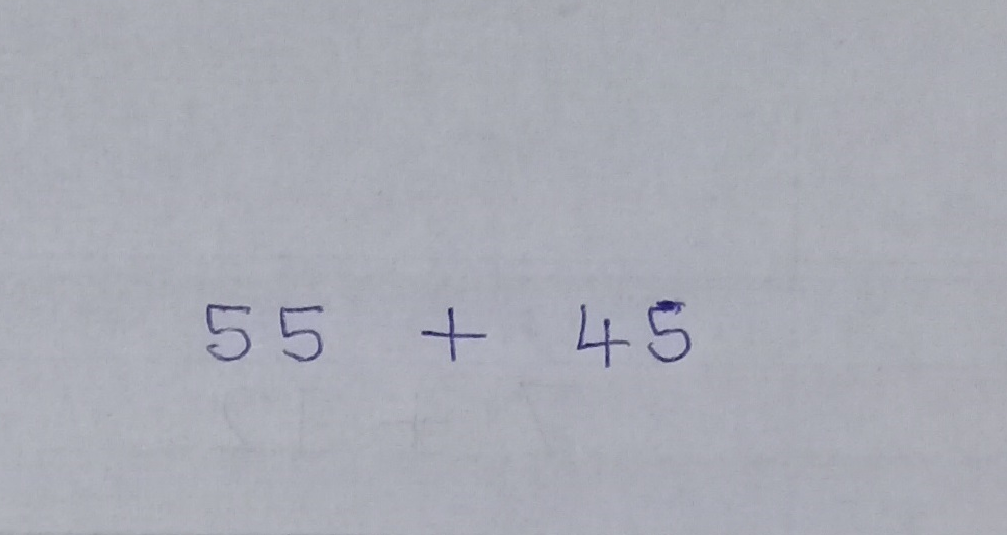 55 + 45